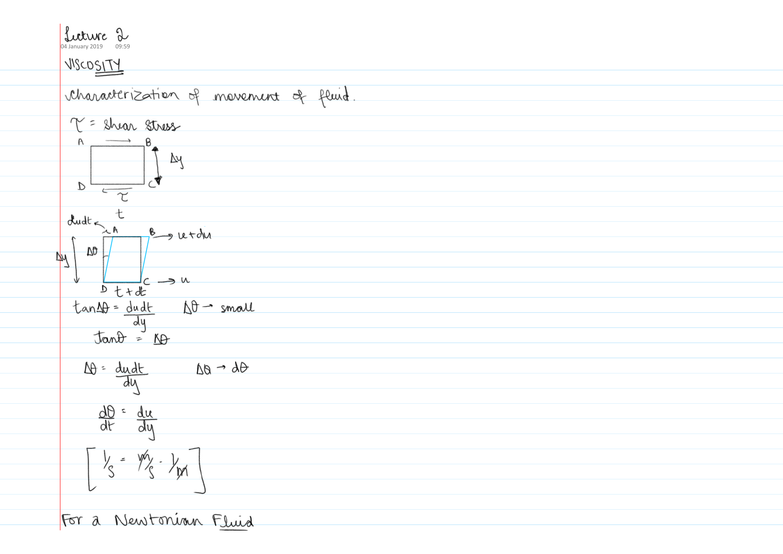 Lecture 2
04 January 2019 09:59
VISCOSITY
Characterization of movement of fluid.
τ = shear stress
A B
Δy
D C
τ
t
dudt
A B → u+du
Δy Δθ
D C → u
t + dt
tanΔθ = dudt/dy Δθ → small
Tanθ = Δθ
Δθ = dudt/dy Δθ → dθ
dθ/dt = du/dy
[ 1/s = m/s · 1/m ]
For a Newtonian Fluid